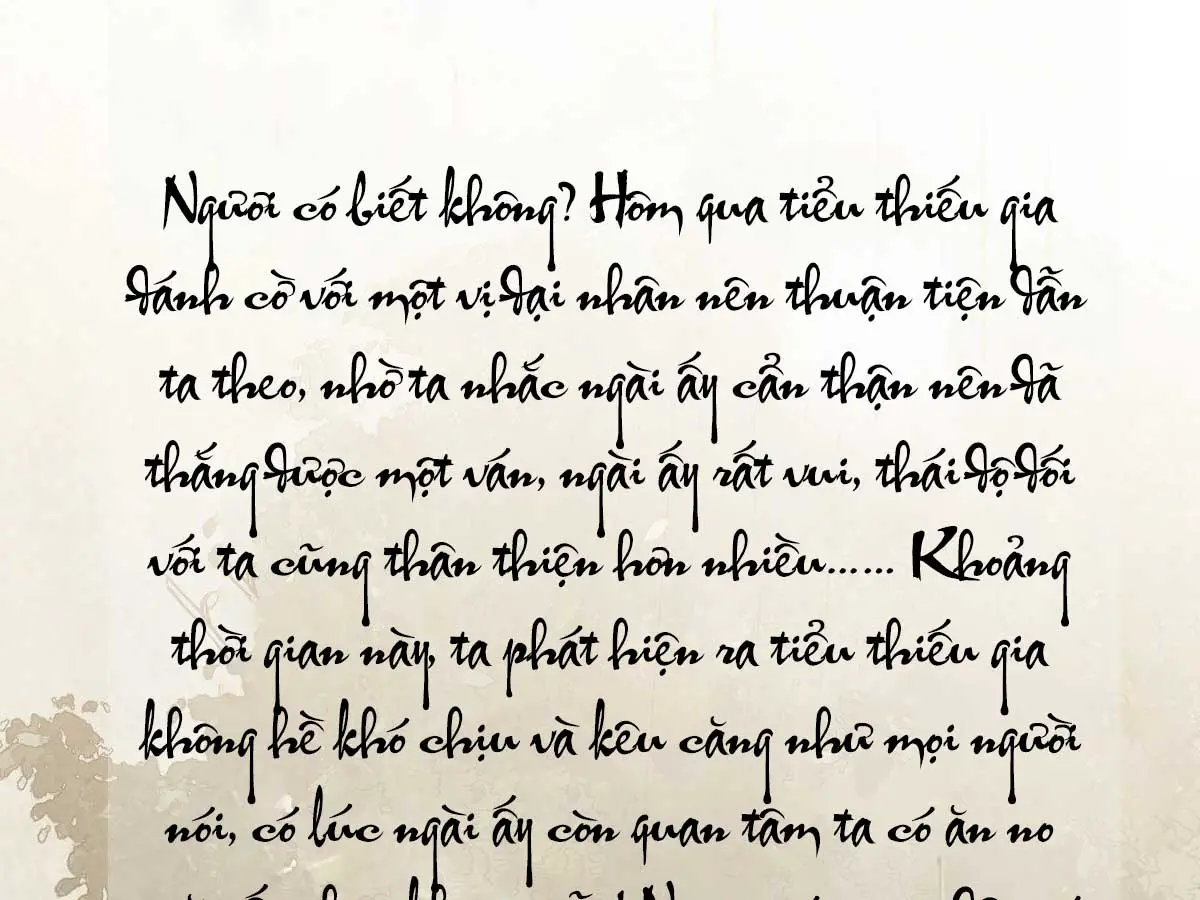 Ngươi có biết không? Hôm qua tiểu thiếu gia
đánh cờ với một vị đại nhân nên thuận tiện dẫn
ta theo, nhờ ta nhắc ngài ấy cẩn thận nên đã
thắng được một ván, ngài ấy rất vui, thái độ đối
với ta cũng thân thiện hơn nhiều...... Khoảng
thời gian này, ta phát hiện ra tiểu thiếu gia
không hề khó chịu và kêu căng như mọi người
nói, có lúc ngài ấy còn quan tâm ta có ăn no